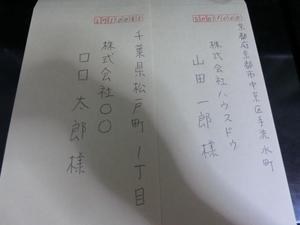 京都府京都市中京区手洗水町
株式会社ハウスドゥ
山田 一郎 様
千葉県松戸町 1丁目
株式会社〇〇
口口 太郎 様